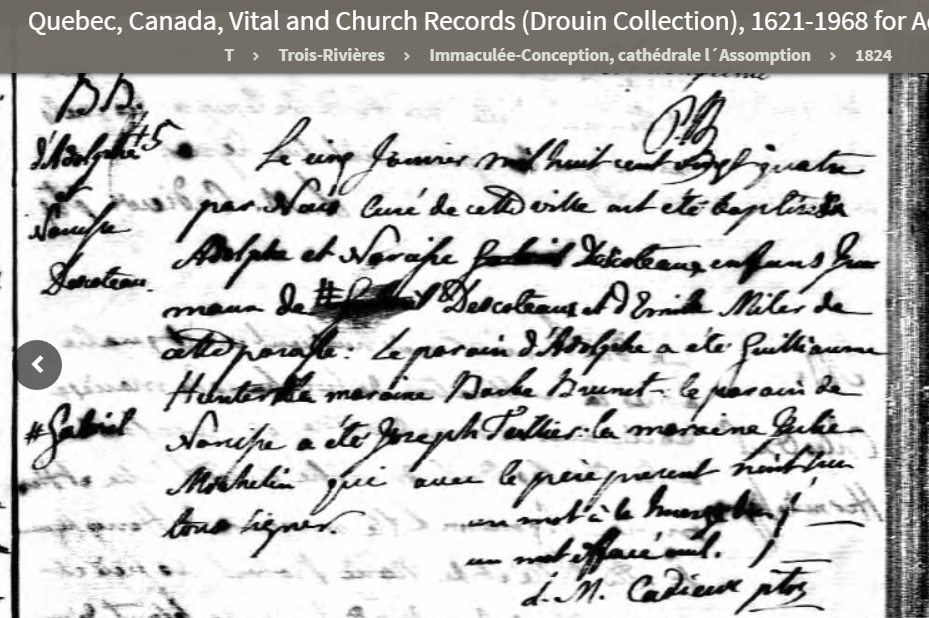 Quebec, Canada, Vital and Church Records (Drouin Collection), 1621-1968 for A
T > Trois-Rivières > Immaculée-Conception, cathédrale l´Assomption > 1824
BB.
d'Adolphe #5
et
Narcisse
Descoteau.
P.B
Le cinq Janvier mil huit cent vingt quatre
par Nous Curé de cette ville ont été baptisés
Adolphe et Narcisse Descoteaux enfans Ju
maux de # Descoteaux et d'Emilie Miler de
cette paroisse: Le parain d'Adolphe a été Guilliaume
Hunter la maraine Barbe Brunet. le parain de
#Gabriel
Narcisse a été Joseph Tellier: la maraine Julie
Michelin qui avec le père present n'ont su
tous signer.
un mot à la marge bon /
un mot effacé nul. /
L. M. Cadieux ptre